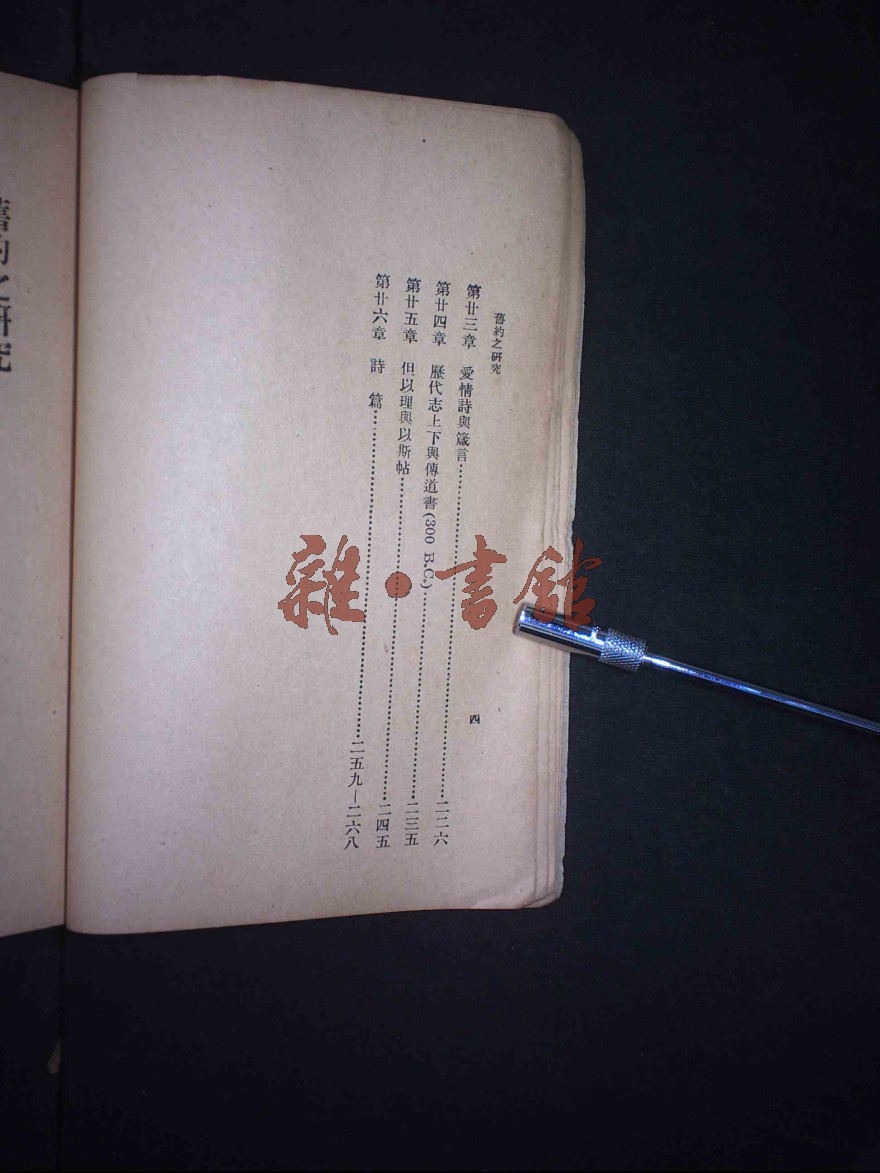 舊約之硏究
四
第廿三章 愛情詩與箴言…………二二六
第廿四章 歷代志上下與傳道書(300 B.C.)…………二三五
第廿五章 但以理與以斯帖…………二四五
第廿六章 詩篇…………二五九—二六八
舊約之硏究
雜·書館